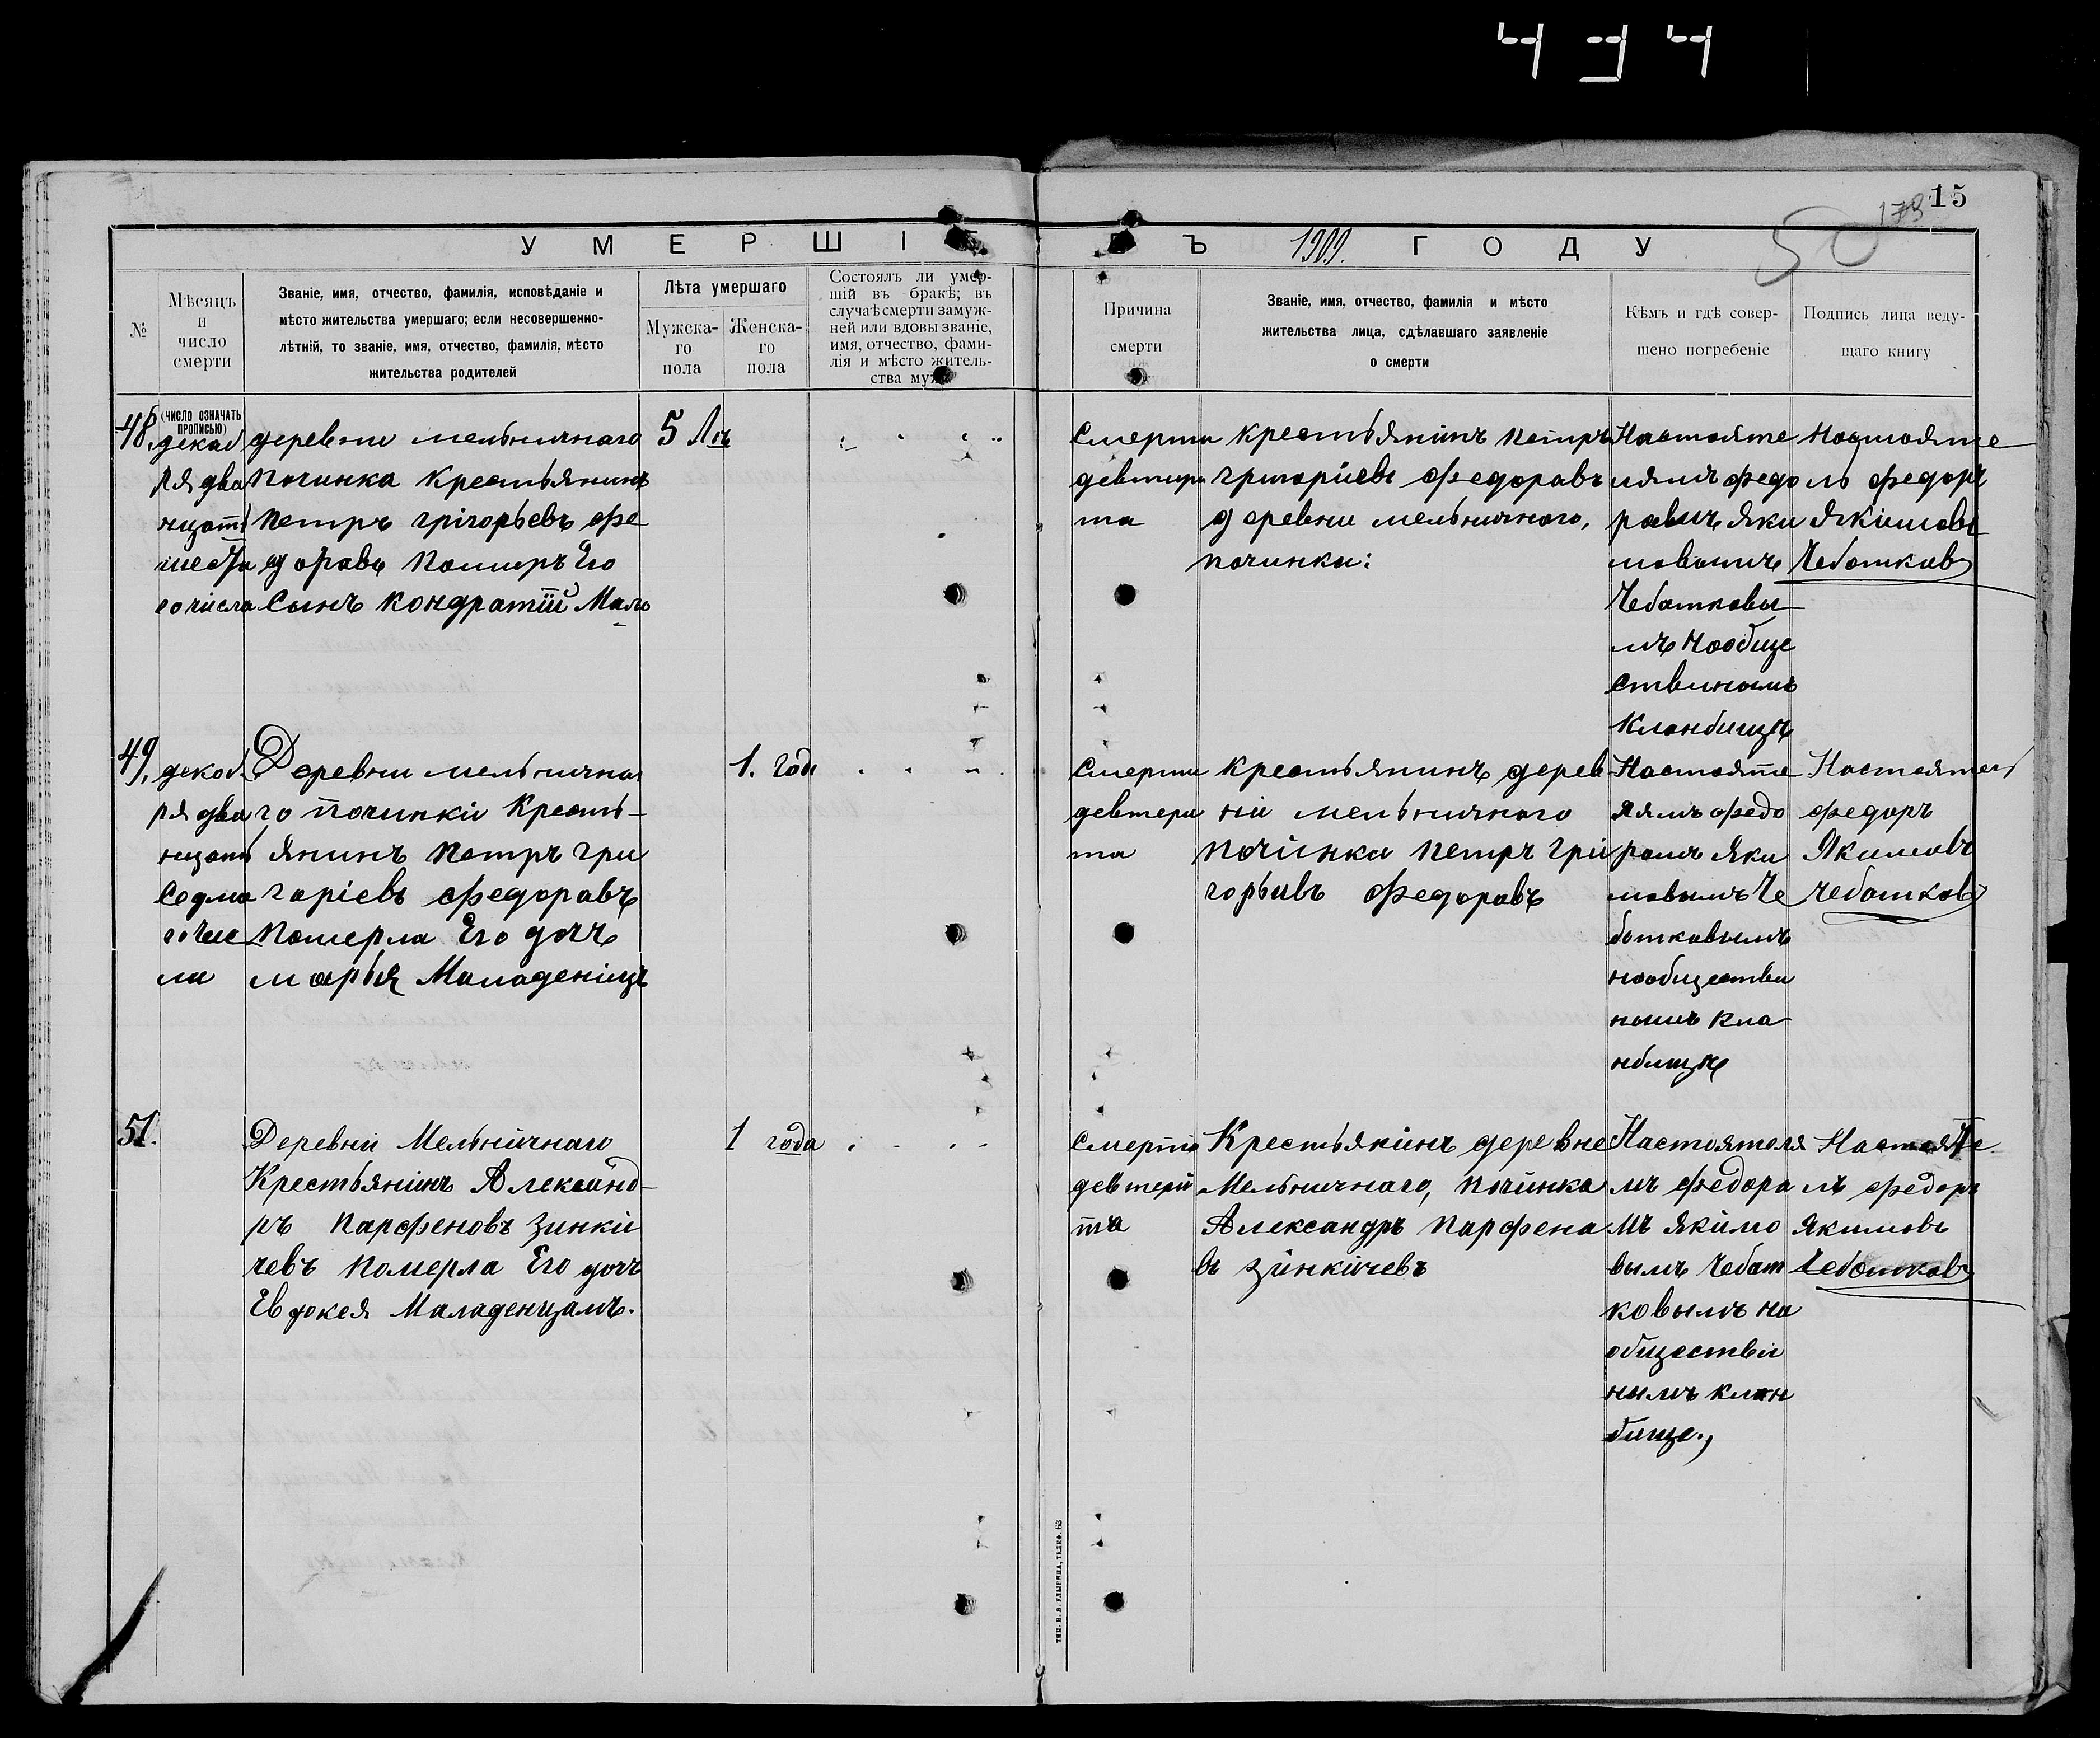 494
15
173
50
УМЕРШІЕ ВЪ 1909. ГОДУ
№
Мѣсяцъ
и
число
смерти
Званіе, имя, отчество, фамилія, исповѣданіе и
мѣсто жительства умершаго; если несовершенно-
лѣтній, то званіе, имя, отчество, фамилія, мѣсто
жительства родителей
Лѣта умершаго
Мужска-
го
пола
Женска-
го
пола
Состоялъ ли умер-
шій въ бракѣ; въ
случаѣ смерти замуж-
ней или вдовы званіе,
имя, отчество, фами-
лія и мѣсто житель-
ства мужа
Причина
смерти
Званіе, имя, отчество, фамилія и мѣсто
жительства лица, сдѣлавшаго заявленіе
о смерти
Кѣмъ и гдѣ совер-
шено погребеніе
Подпись лица веду-
щаго книгу
(число означать
прописью)
48.
декаб
ря два
нцать
шеста
го числа
деревни мельничнаго
починка Крестьянинъ
Петръ Григорьевъ Фе
доравъ Помиръ Его
Сынъ Кондратій Мало
5 Лѣ
Смерти
девтири
та
Крестьянинъ Петръ
Григоріевъ Федоравъ
деревни мельничнаго,
починки:
Настояте
лямъ Федо
равмъ Яки
мовымъ
Чебатковы
мъ нообще
ствиномъ
Кланбищѣ
Ностояте
ль Федоръ
Якимовъ
Чебатковъ
49.
декаб.
ря два
нцать
Седмо
го чис
ла
Деревни мельнична
го починки Кресть-
янинъ Петръ Гри
горіевъ Федоравъ
Померла Его дочь
марья Маладеницъ
1. Года
Смерти
девтери
та
Крестьянинъ дерев
ни мельничнаго
Починка Петръ Гри
горьивъ Федоравъ
Настояте
лямъ Федо
ромъ Яки
мовымъ Че
ботковымъ
нообществи
номъ Кла
нбищѣ
Настоятель
Федоръ
Якимовъ
Чебатковъ
51.
Деревни Мельничнаго
Крестьянинъ Александ-
ръ Парфеновъ Зинки
чевъ Померла Его дочь
Евдокея Маладенцамъ.
1 года
Смерто
девтери
та
Крестьянинъ деревне
Мельничнаго, Починка
Александръ Парфена
въ Зинкичевъ
Настоятеля
мъ Федора
мъ Якимо
вымъ Чебат
ковымъ на
обществи
нымъ клан
бище.,
Настояте
ль Федоръ
Якимовъ
Чебатковъ